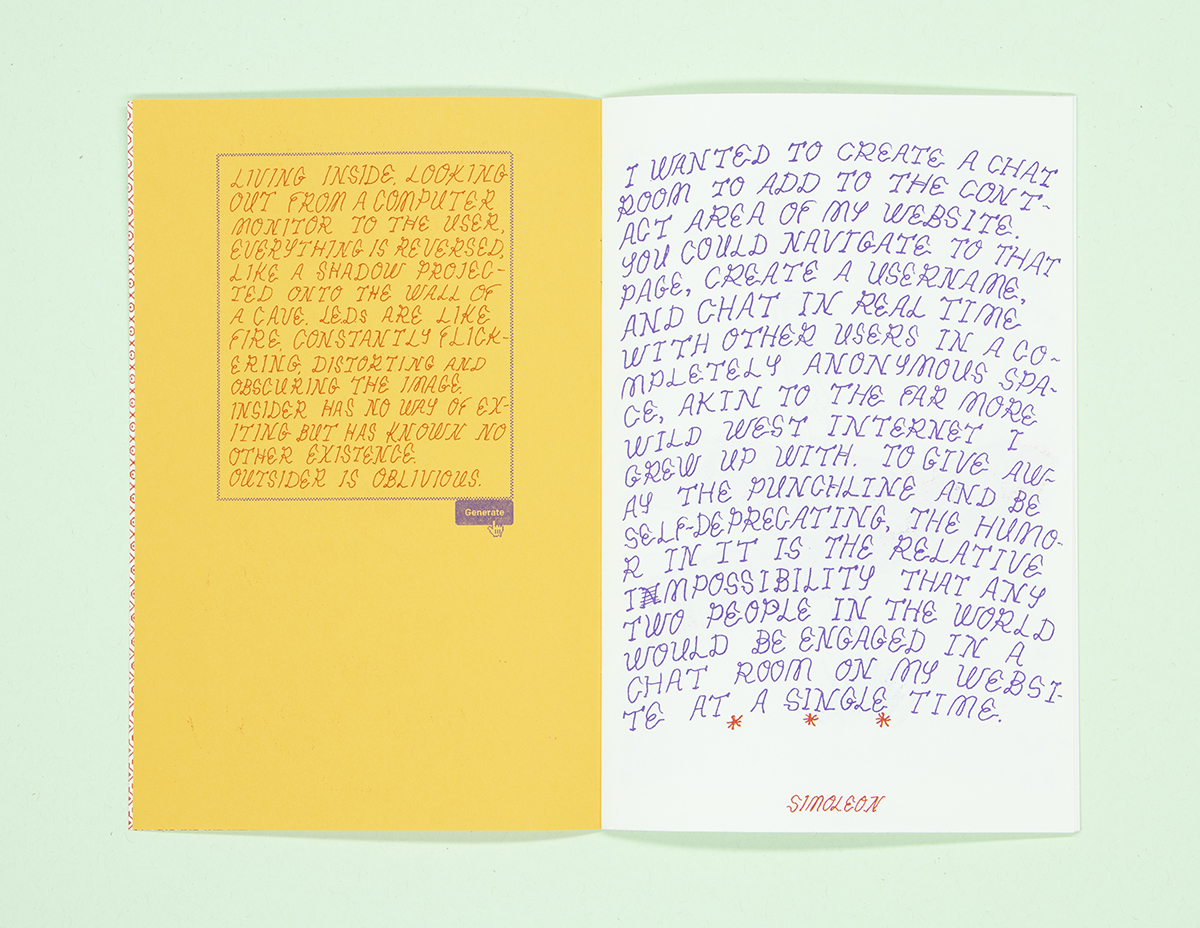 LIVING INSIDE, LOOKING
OUT FROM A COMPUTER
MONITOR TO THE USER,
EVERYTHING IS REVERSED,
LIKE A SHADOW PROJEC-
TED ONTO THE WALL OF
A CAVE. LEDS ARE LIKE
FIRE CONSTANTLY FLICK-
ERING DISTORTING AND
OBSCURING THE IMAGE.
INSIDER HAS NO WAY OF EX-
ITING BUT HAS KNOWN NO
OTHER EXISTENCE.
OUTSIDER IS OBLIVIOUS.
Generate
I WANTED TO CREATE A CHAT
ROOM TO ADD TO THE CONT-
ACT AREA OF MY WEBSITE.
YOU COULD NAVIGATE TO THAT
PAGE, CREATE A USERNAME,
AND CHAT IN REAL TIME
WITH OTHER USERS IN A CO-
MPLETELY ANONYMOUS SPA-
CE, AKIN TO THE FAR MORE
WILD WEST INTERNET I
GREW UP WITH. TO GIVE AW-
AY THE PUNCHLINE AND BE
SELF-DEPRECATING, THE HUMO-
R IN IT IS THE RELATIVE
IMPOSSIBILITY THAT ANY
TWO PEOPLE IN THE WORLD
WOULD BE ENGAGED IN A
CHAT ROOM ON MY WEBSI-
TE AT A SINGLE TIME.
* * *
SIMOLEON